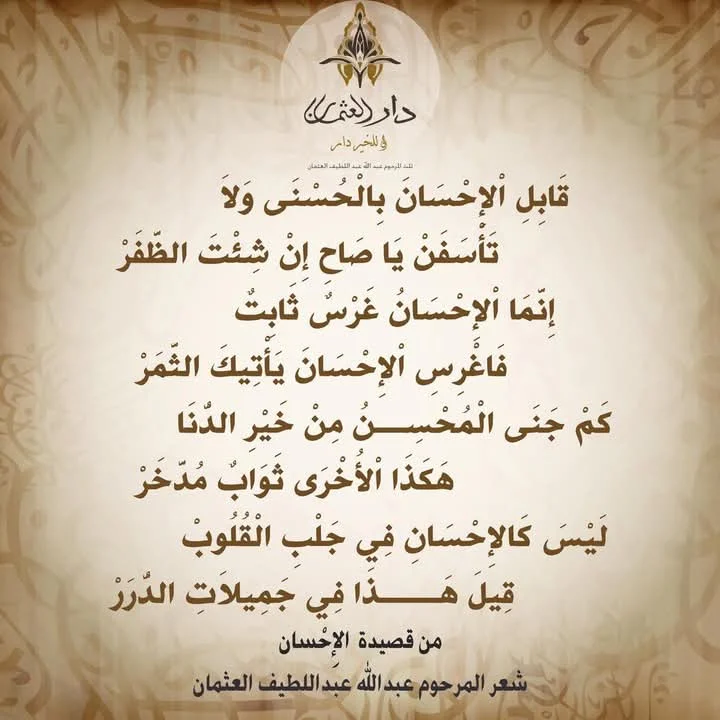 دار العثمان
في للخير دار
ثلث المرحوم عبد الله عبد اللطيف العثمان
قَابِلِ اْلإِحْسَانَ بِالْحُسْنَى وَلاَ
تَأْسَفَنْ يَا صَاحِ إِنْ شِئْتَ الظَّفَرْ
إِنَّمَا اْلإِحْسَانُ غَرْسٌ ثَابِتٌ
فَاغْرِسِ اْلإِحْسَانَ يَأْتِيكَ الثَّمَرْ
كَمْ جَنَى الْمُحْسِـــنُ مِنْ خَيْرِ الدُّنَا
هَكَذَا اْلأُخْرَى ثَوَابٌ مُدَّخَرْ
لَيْسَ كَالإِحْسَانِ فِي جَلْبِ الْقُلُوبْ
قِيلَ هَـــــذَا فِي جَمِيلاَتِ الدُّرَرْ
من قصيدة الإِحْسان
شعر المرحوم عبدالله عبداللطيف العثمان